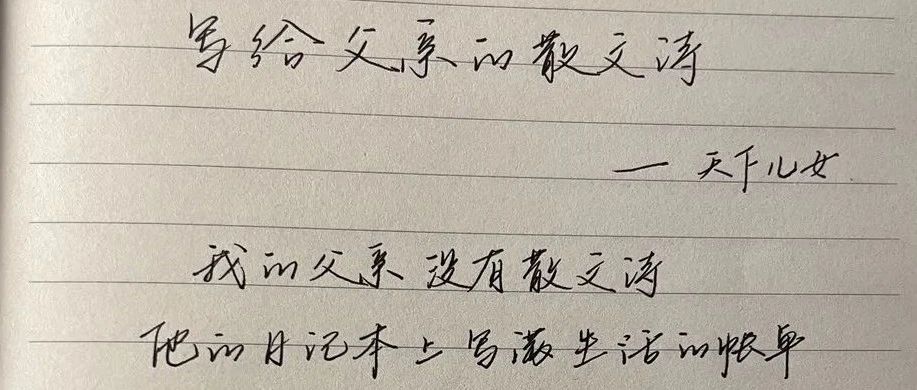 写给父亲的散文诗
— 天下儿女
我的父亲没有散文诗
他的日记本上写满生活的帐单